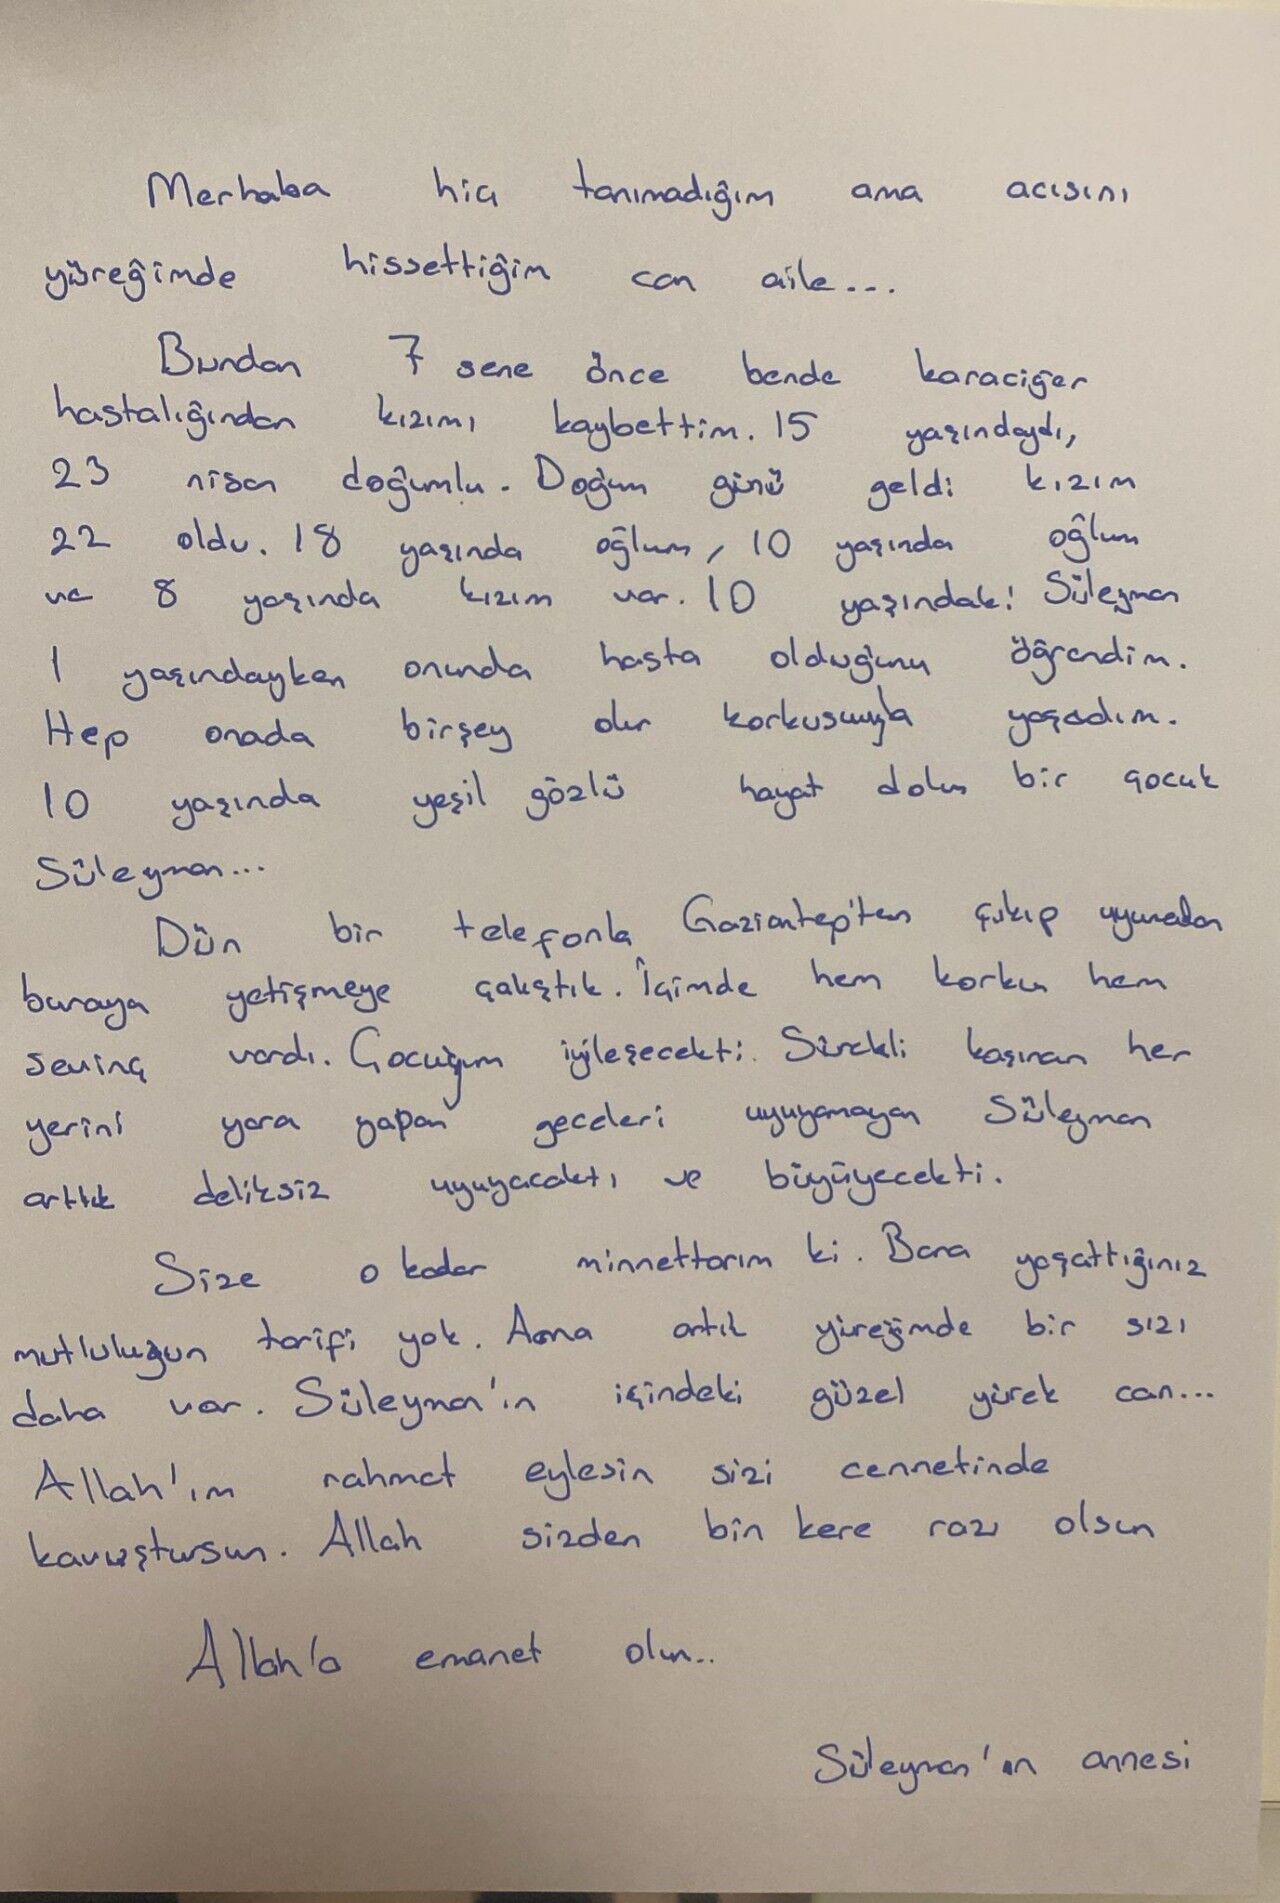 Merhaba hiç tanımadığım ama acısını
yüreğimde hissettiğim can aile...
Bundan 7 sene önce bende karaciğer
hastalığından kızımı kaybettim. 15 yaşındaydı,
23 nisan doğumlu. Doğum günü geldi kızım
22 oldu. 18 yaşında oğlum, 10 yaşında oğlum
ve 8 yaşında kızım var. 10 yaşındaki Süleyman
1 yaşındayken onunda hasta olduğunu öğrendim.
Hep onada birşey olur korkusuyla yaşadım.
10 yaşında yeşil gözlü hayat dolu bir çocuk
Süleyman...
Dün bir telefonla Gaziantep'ten çıkıp uyumadan
buraya yetişmeye çalıştık. İçimde hem korku hem
sevinç vardı. Çocuğum iyileşecekti. Sürekli kaşınan her
yerini yara yapan geceleri uyuyamayan Süleyman
artık deliksiz uyuyacaktı ve büyüyecekti.
Size o kadar minnettarım ki. Bana yaşattığınız
mutluluğun tarifi yok. Ama artık yüreğimde bir sızı
daha var. Süleyman'ın içindeki güzel yürek can...
Allah'ım rahmet eylesin sizi cennetinde
kavuştursun. Allah sizden bin kere razı olsun
Allah'a emanet olun..
Süleyman'ın annesi